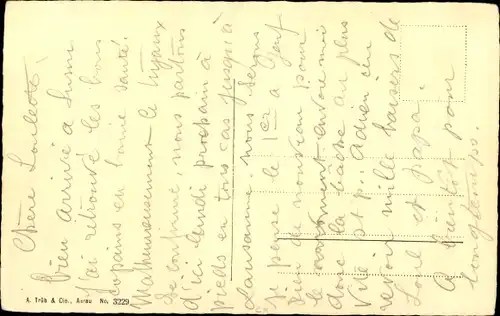 Chère Loulette!
bien arrivé à
j'ai retrouvé les bons
copains en bonne santé.
Malheureusement ce tuyaux
se confirme, nous partons
d'ici lundi prochain à
pieds en tous cas jusqu'à
Lausanne. nous serons
je pense le 1er à Genf
rien de nouveau pour
le moment envoie moi
donc la bâche au plus
vite st. p. Adieu chu
revoir mille baisers de
Loul et papa.
A bientôt pour
longtemps.
A. Trüb & Cie., Aarau No. 3229